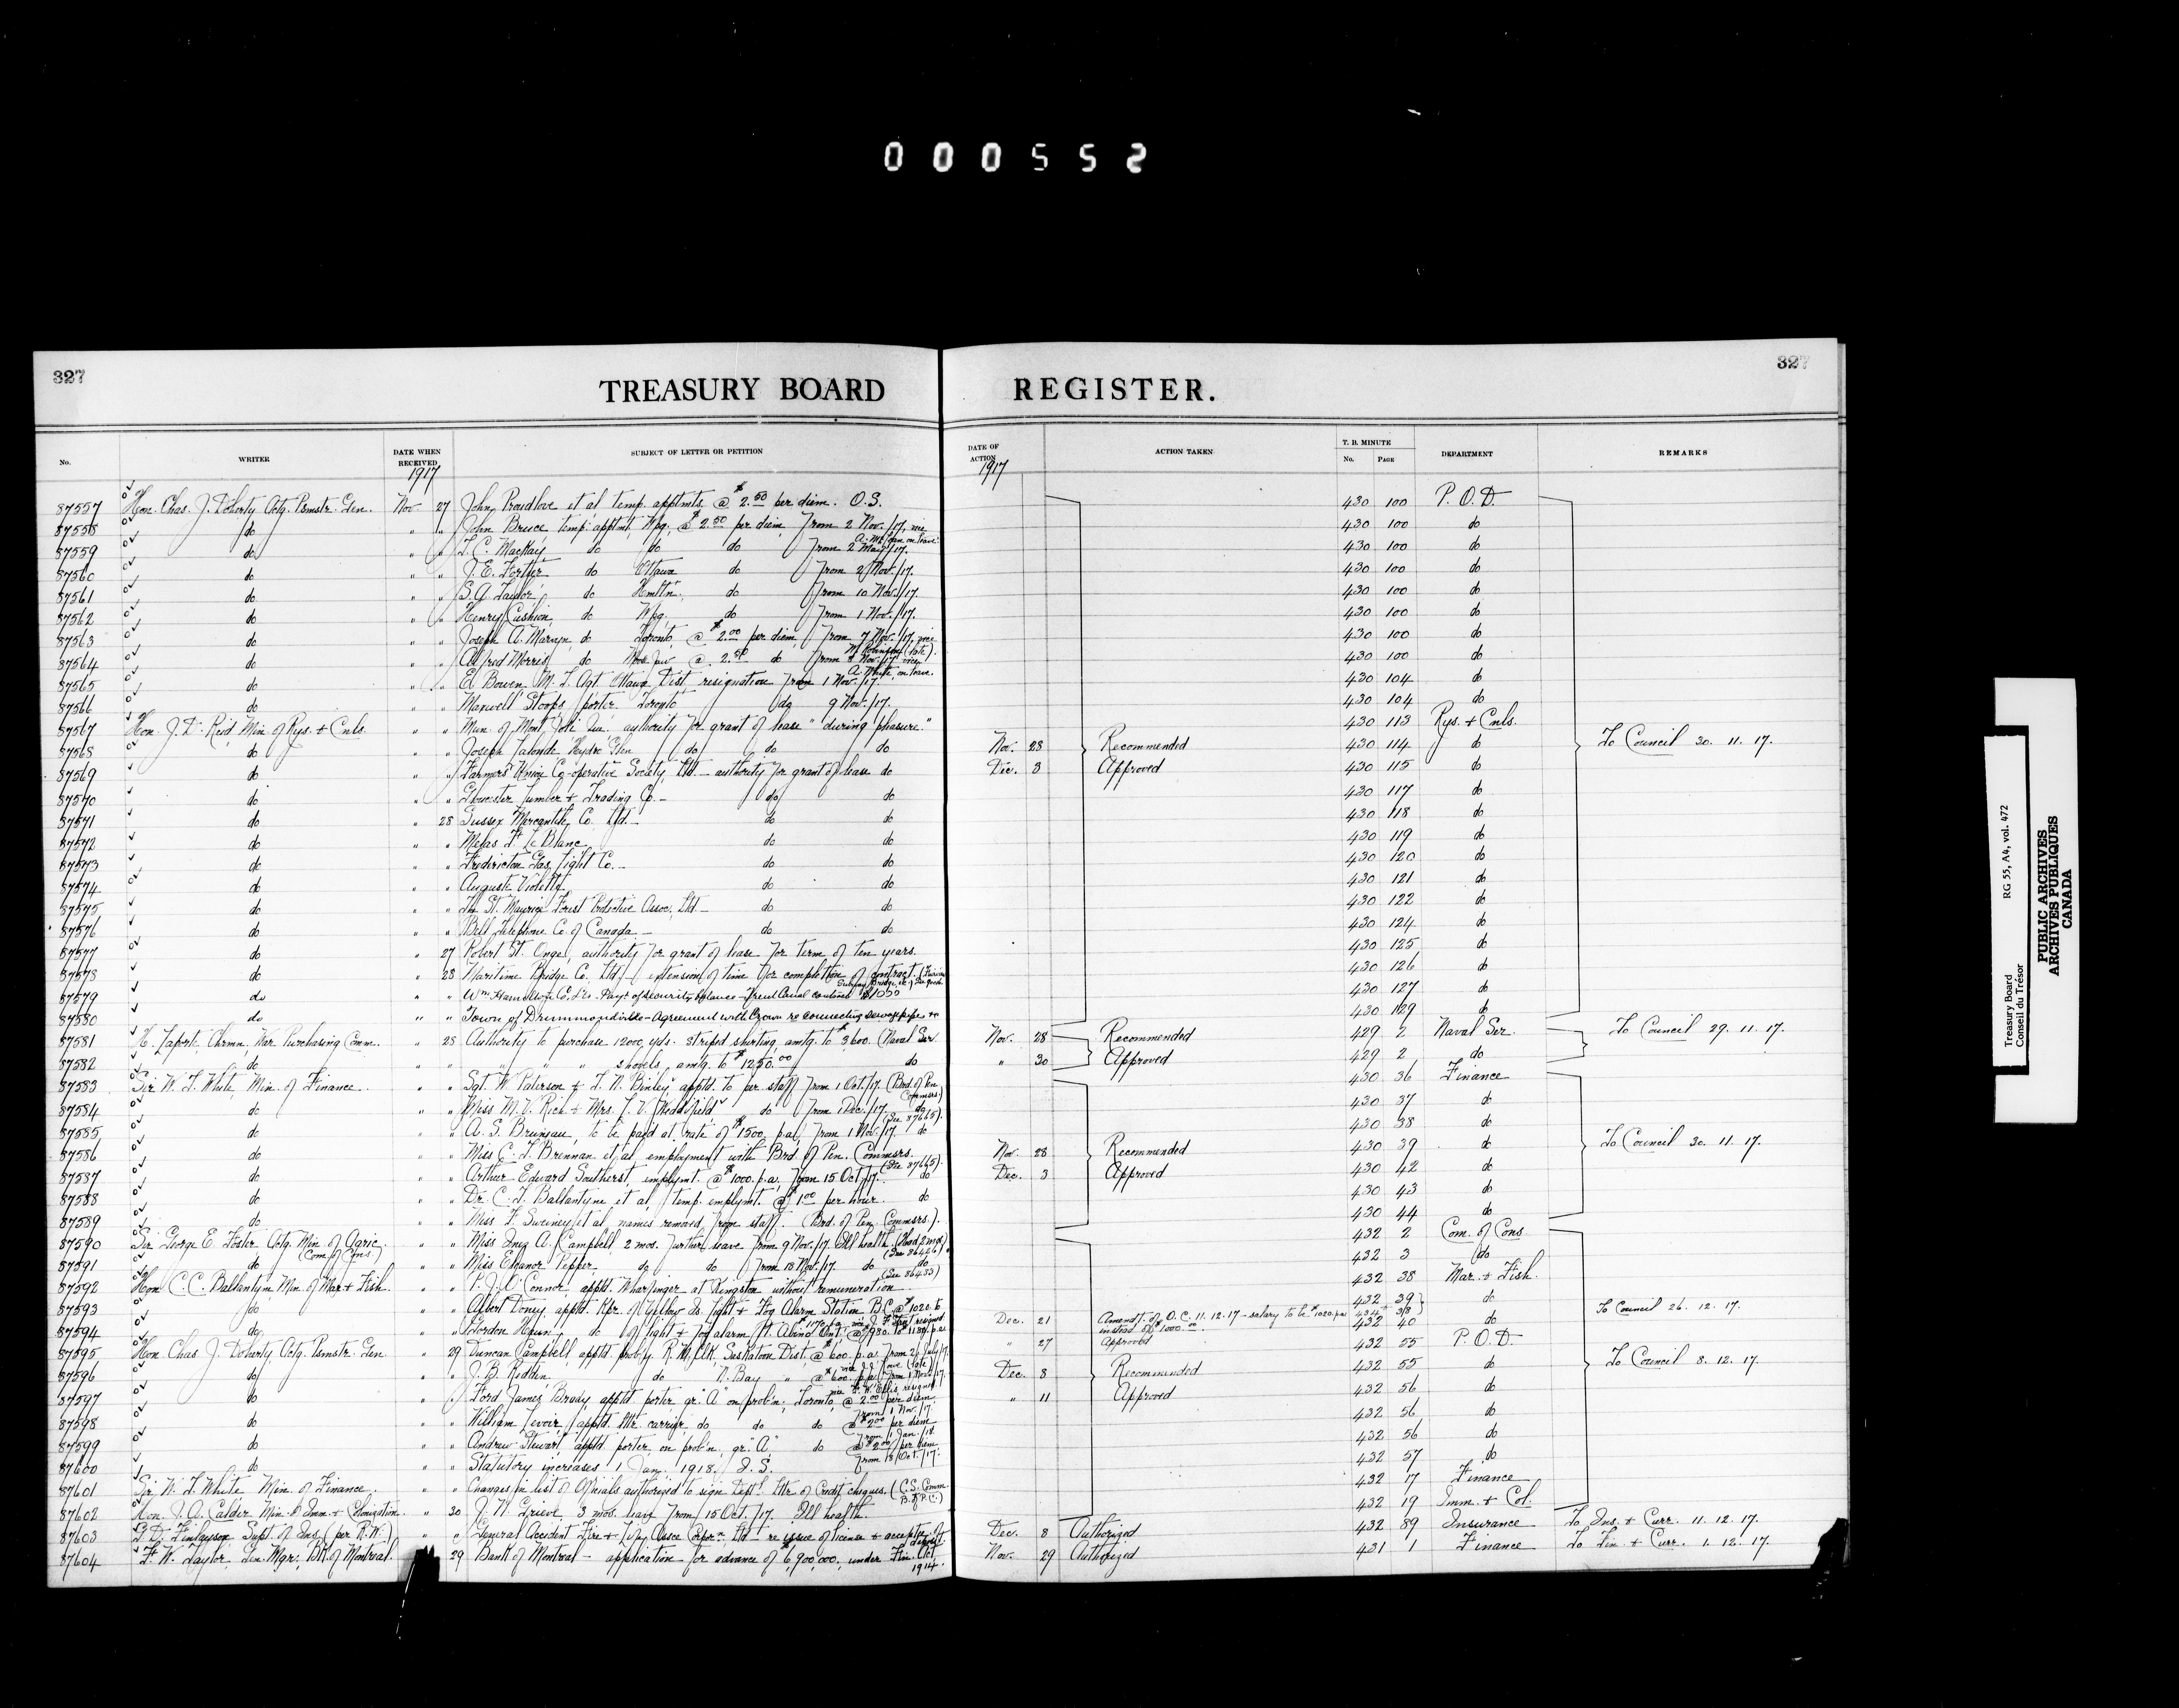 000552
327
327
TREASURY BOARD REGISTER.
No. WRITER DATE WHEN RECEIVED SUBJECT OF LETTER OR PETITION DATE OF ACTION ACTION TAKEN T. B. MINUTE No. PAGE DEPARTMENT REMARKS
1917 1917
87557 Hon. Chas. J. Doherty Actg. Pmstr. Gen. Nov. 27 John Proudlove et al temp. apptmts. @ $2.50 per diem. O.S. 430 100 P.O.D.
87558 do " " John Bruce temp. apptmt. Wpg. @ $2.50 per diem from 2 Nov./17, vice 430 100 do
87559 do " " T. C. MacKay do do do from 2 May/17. 430 100 do
87560 do " " J. E. Fortier do Ottawa do from 2 Nov./17. 430 100 do
87561 do " " S. G. Taylor do Hmltn. do from 10 Nov./17. 430 100 do
87562 do " " Henry Cashion, do Wpg. do from 1 Nov./17. 430 100 do
87563 do " " Joseph A. do Toronto @ $2.00 per diem, from 7 Nov./17, vice 430 100 do
87564 do " " Alfred Morris do Moose Jaw @ 2.50 do from 8 Nov. 17 vice 430 100 do
A. White, on leave.
87565 do " " E. Bowen, M. T. Agt. Ottawa Dist. resignation from 1 Nov./17. 430 104 do
87566 do " " Maxwell Stoops, porter Toronto do 9 Nov./17. 430 104 do
87567 Hon. J. D. Reid Min. of Rys. & Cnls. " " Mun. of Mont Joli Que. authority for grant of lease "during pleasure." 430 113 Rys. & Cnls.
87568 do " " Joseph Lalonde Glen do do do Nov. 28 Recommended 430 114 do To Council 30. 11. 17.
87569 do " " Farmers' Union Co-operative Society Ltd. - authority for grant of lease do Dec. 3 Approved 430 115 do
87570 do " " Gloucester Lumber & Trading Co. - do do 430 117 do
87571 do " 28 Sussex Mercantile Co. Ltd. - do do 430 118 do
87572 do " " F. Le Blanc do do 430 119 do
87573 do " " Fredericton Gas Light Co. - do do 430 120 do
87574 do " " Auguste Violette do do 430 121 do
87575 do " " The St. Maurice Forest Protective Assoc. Ltd - do do 430 122 do
87576 do " " Bell Telephone Co. of Canada - do do 430 124 do
87577 do " 27 Robert St. Onge, authority for grant of lease for term of ten years. 430 125 do
87578 do " 28 Maritime Bridge Co. Ltd - extension of time for completion of contract 430 126 do
87579 do " " Wm. Hamilton Co. Ltd - Payt of security balance - Trent Canal contract $1000 430 127 do
87580 do " " Town of Drummondville - Agreement with Crown re connecting sewer pipe 430 129 do
87581 H. Laporte, Chrmn. War Purchasing Comm. " 28 Authority to purchase 12000 yds. striped shirting, amtg. to $3600. (Naval Ser. Nov. 28 Recommended 429 2 Naval Ser. To Council 29. 11. 17.
87582 do " " " " " shovels, amtg. to $1250.00 do " 30 Approved 429 2 do
87583 Sir W. T. White, Min. of Finance. " " Sgt. W. Paterson & T. N. Binley apptd. to per. staff from 1 Oct./17. (Brd. of Pen. Commsrs.) 430 36 Finance
87584 do " " Miss M. V. Rich & Mrs. do from 1 Dec./17. do 430 37 do
(See 87665).
87585 do " " A. S. Bruneau, to be paid at rate of $1500. p.a. from 1 Nov./17. do 430 38 do
87586 do " " Miss C. T. Brennan et al employment with Brd. of Pen. Commsrs. Nov. 28 Recommended 430 39 do To Council 30. 11. 17.
(See 87665).
87587 do " " Arthur Edward Southerst, employmt. @ $1000. p.a. from 15 Oct/17. do Dec. 3 Approved 430 42 do
87588 do " " Dr. C. T. Ballantyne et al, temp. emplymt. @ $1.00 per hour. do 430 43 do
87589 do " " Miss F. Sweiney et al, names removed from staff. (Brd. of Pen. Commsrs.). 430 44 do
87590 Sir George E. Foster Actg. Min. of Agric. " " Miss Inez A. Campbell 2 mos. further leave from 9 Nov./17. Ill health. (Had 2 mos.) 432 2 Com. of Cons.
(Com. of Cons.) (See 86426)
87591 do " " Miss Eleanor Pepper, do do from 18 Nov./17. do do 432 3 do
(See 86433)
87592 Hon. C. C. Ballantyne, Min. of Mar. & Fish. " " P. J. O'Connor, apptd. Wharfinger at Kingston without remuneration. 432 38 Mar. & Fish.
87593 do " " Albert Doney apptd. Kpr. of Light & Fog Alarm Station B.C. @ $1020. to 432 39 434 318 do
87594 do " " Gordon do of light & fog alarm Pt. Abino Ont. @ $980. to 1184 p.a. Dec. 21 Amendt. of O.C. 11.12.17 - salary to be $1020 p.a. instead of $1000.00 432 40 do To Council 26. 12. 17.
87595 Hon. Chas. J. Doherty, Actg. Pmstr. Gen. " 29 Duncan Campbell, apptd. prob'y. R. M. Clk. Saskatoon Dist. @ $600. p.a. from 2 July/17. " 27 Approved 432 55 P.O.D.
87596 do " " J. B. Redden do N. Bay " @ $600. p.a. from 1 Nov./17. Dec. 8 Recommended 432 55 do To Council 8. 12. 17.
87597 do " " Ford James Brady, apptd. porter gr. "A" on prob'n, Toronto, @ 2.00 per diem " 11 Approved 432 56 do
from 1 Nov./17.
87598 do " " William apptd. lttr. carrier, do do do @ $2.00 per diem 432 56 do
from 1 Jan./18.
87599 do " " Andrew Stewart apptd. porter, on prob'n. gr. "A" do @ $2.00 per diem 432 56 do
from 18 Oct./17.
87600 do " " Statutory increases 1 Jany. 1918. I. S. 432 57 do
87601 Sir W. T. White Min. of Finance. " " Changes in list of Officials authorized to sign Dept'l. lttr. of Credit cheques. (C.S. Comm. B. of P.C.) 432 17 Finance
87602 Hon. J. A. Calder Min. of Imm. & Colonization. " 30 J. N. Grieve, 3 mos. leave from 15 Oct./17. Ill health. 432 19 Imm. & Col.
87603 G. D. Finlayson Supt. of Ins. (per R.W.) " " General Accident Fire & Life Assce. Corpn. Ltd. - re issue of license & acceptce. of deposit. Dec. 8 Authorized 432 89 Insurance To Ins. & Curr. 11. 12. 17.
87604 F. W. Taylor, Gen. Mgr. Bk. of Montreal. 29 Bank of Montreal - application for advance of $6,900,000. under Fin. Act 1914. Nov. 29 Authorized 431 1 Finance To Fin. & Curr. 1. 12. 17.
Treasury Board RG 55, A4, vol. 472
Conseil du Trésor
PUBLIC ARCHIVES
ARCHIVES PUBLIQUES
CANADA